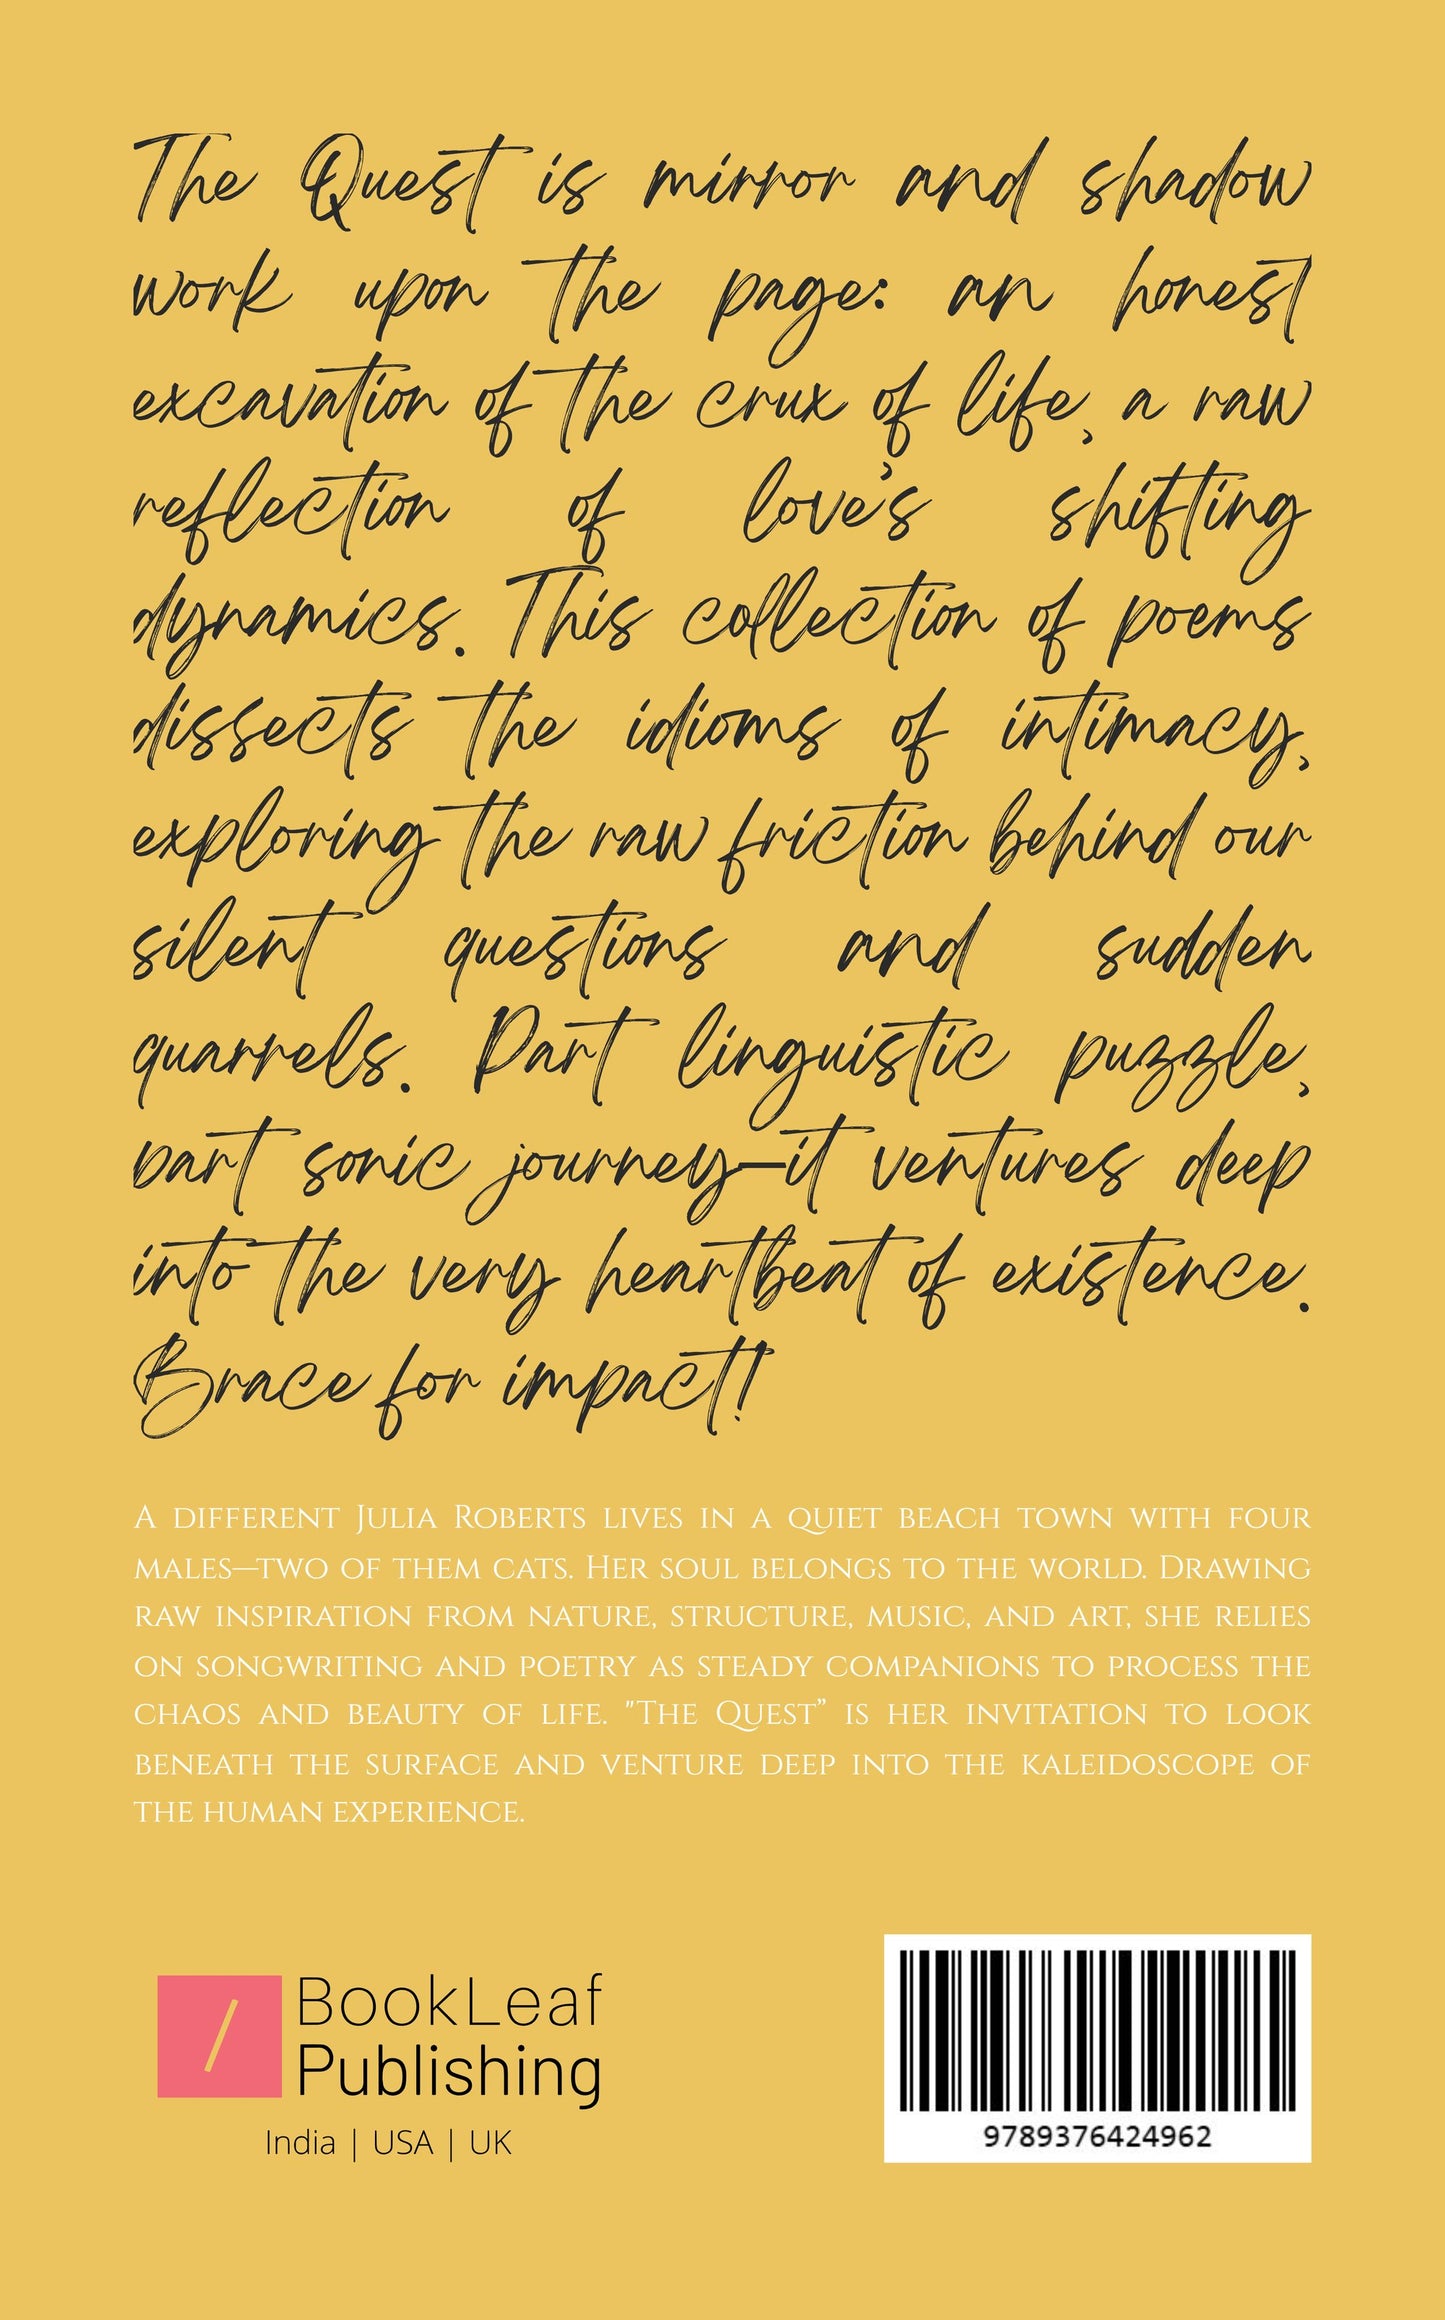 The Quest is mirror and shadow
work upon the page: an honest
excavation of the crux of life, a raw
reflection of love's shifting
dynamics. This collection of poems
dissects the idioms of intimacy,
exploring the raw friction behind our
silent questions and sudden
quarrels. Part linguistic puzzle,
part sonic journey—it ventures deep
into the very heartbeat of existence.
Brace for impact!
A different Julia Roberts lives in a quiet beach town with four
males—two of them cats. Her soul belongs to the world. Drawing
raw inspiration from nature, structure, music, and art, she relies
on songwriting and poetry as steady companions to process the
chaos and beauty of life. "The Quest” is her invitation to look
beneath the surface and venture deep into the kaleidoscope of
the human experience.
BookLeaf
Publishing
India | USA | UK
9789376424962